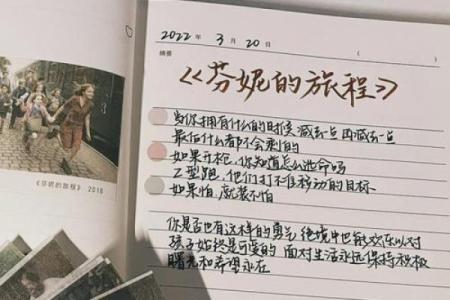 2022 年 3 月 20 日
摘要
《芬妮的旅程》
当你拥有什么的时候 减去一点 再减去一点
最后什么都不会剩的
如果开枪，你知道怎么逃命吗
Z型跑，他们打不准移动的目标
如果怕，就装不怕
你是否也有这样的勇气 绝境中也能欢乐以对
孩子始终是可爱的 面对生活永远保持积极
曙光和希望永在
《芬妮的旅程》 2016